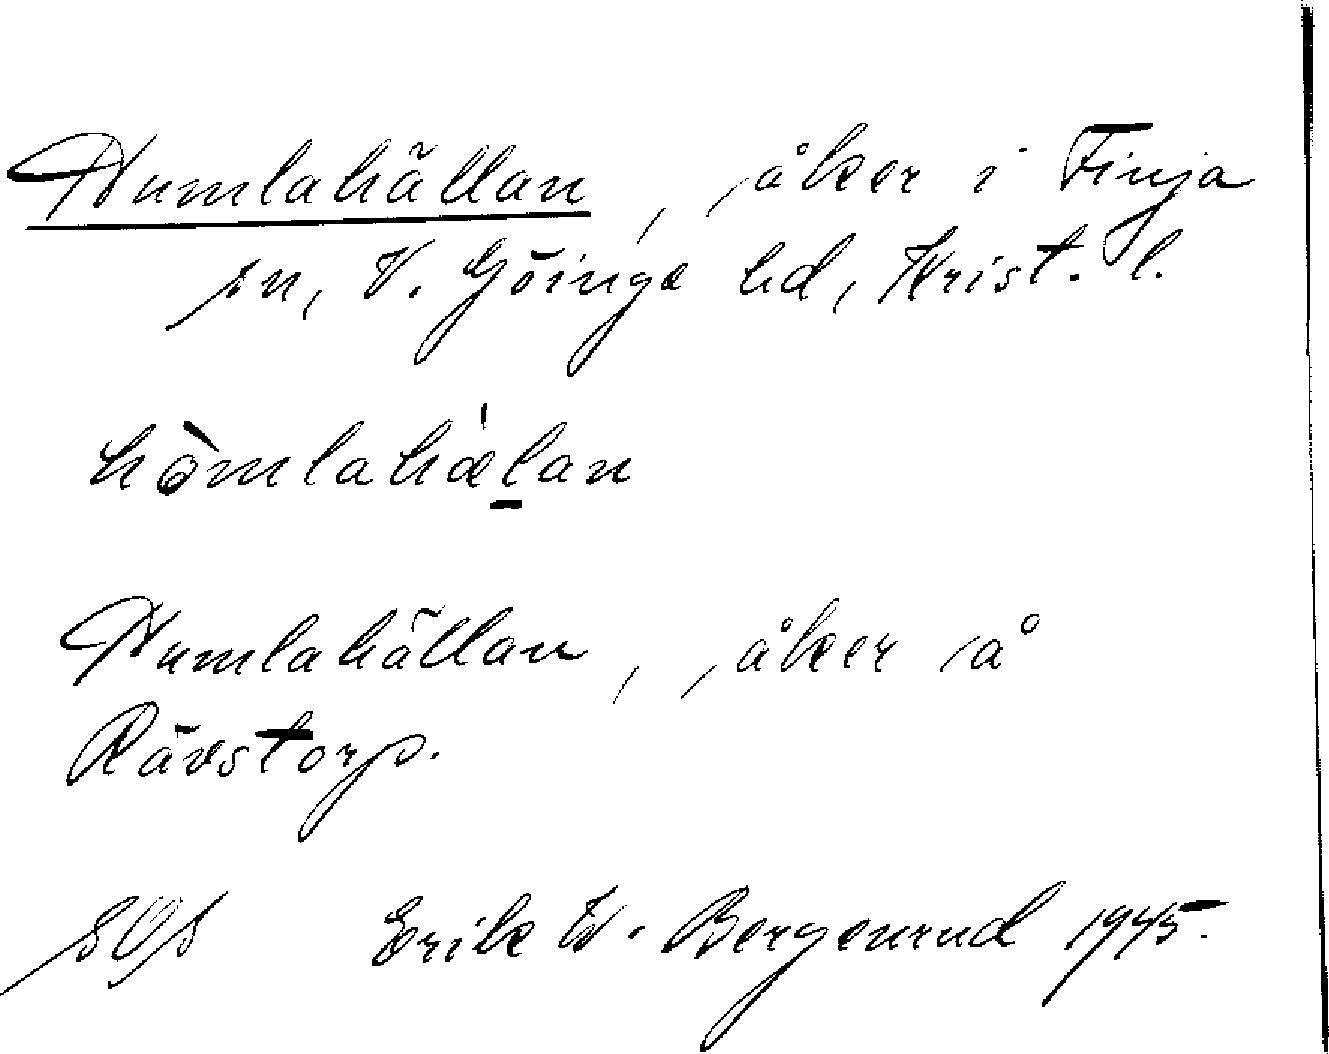 Humlahällan, åker i Finja
sn, V. Göinge hd, Krist. l.
hòmlahæ̍l̠an
Humlahällan, åker å
Rävstorp.
Erik W. Bergenrud 1945.